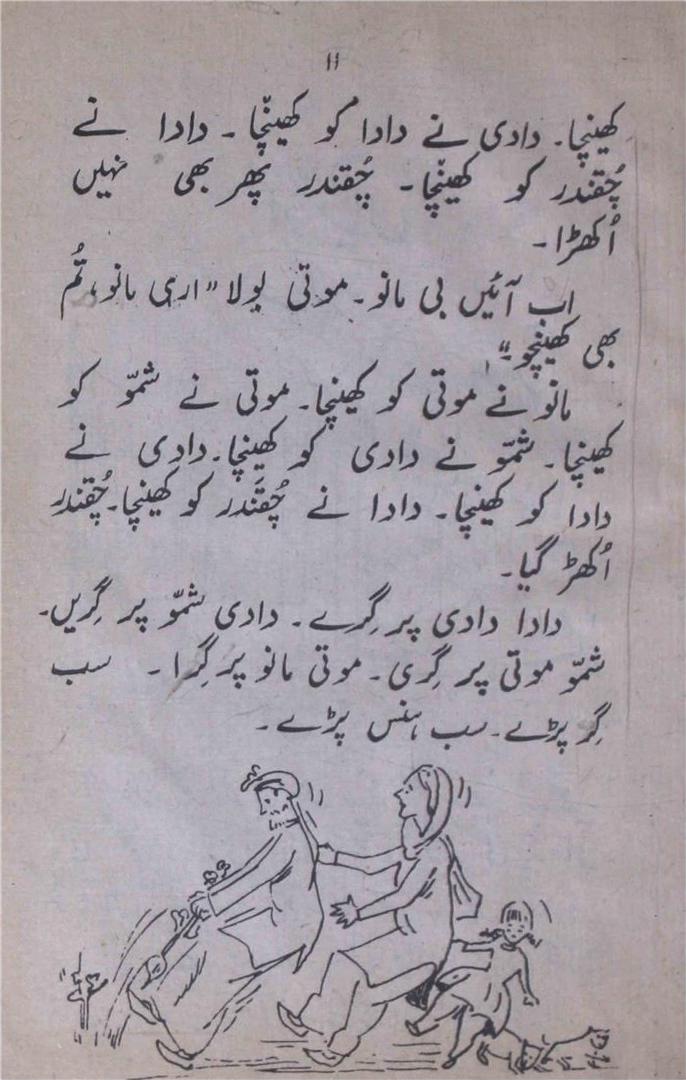 ۱۱
کھینچا۔ دادی نے دادا کو کھینّچا۔ دادا نے
چُقندر کو کھینّچا۔ چُقندر پھر بھی نہیں
اُکھڑا۔
اب آئیں بی مانو۔ موتی بولا "اری مانو، تُم
بھی کھینچو۔"
مانو نے موتی کو کھینچا۔ موتی نے شمّو کو
کھینچا۔ شمّو نے دادی کو کھینچا۔ دادی نے
دادا کو کھینچا۔ دادا نے چُقَندر کو کھینچا۔ چُقندر
اُکھڑ گیا۔
دادا دادی پر گِرے۔ دادی شمّو پر گِریں۔
شمّو موتی پر گِری۔ موتی مانو پر گِرا۔ سب
گِر پڑے۔ سب ہنس پڑے۔